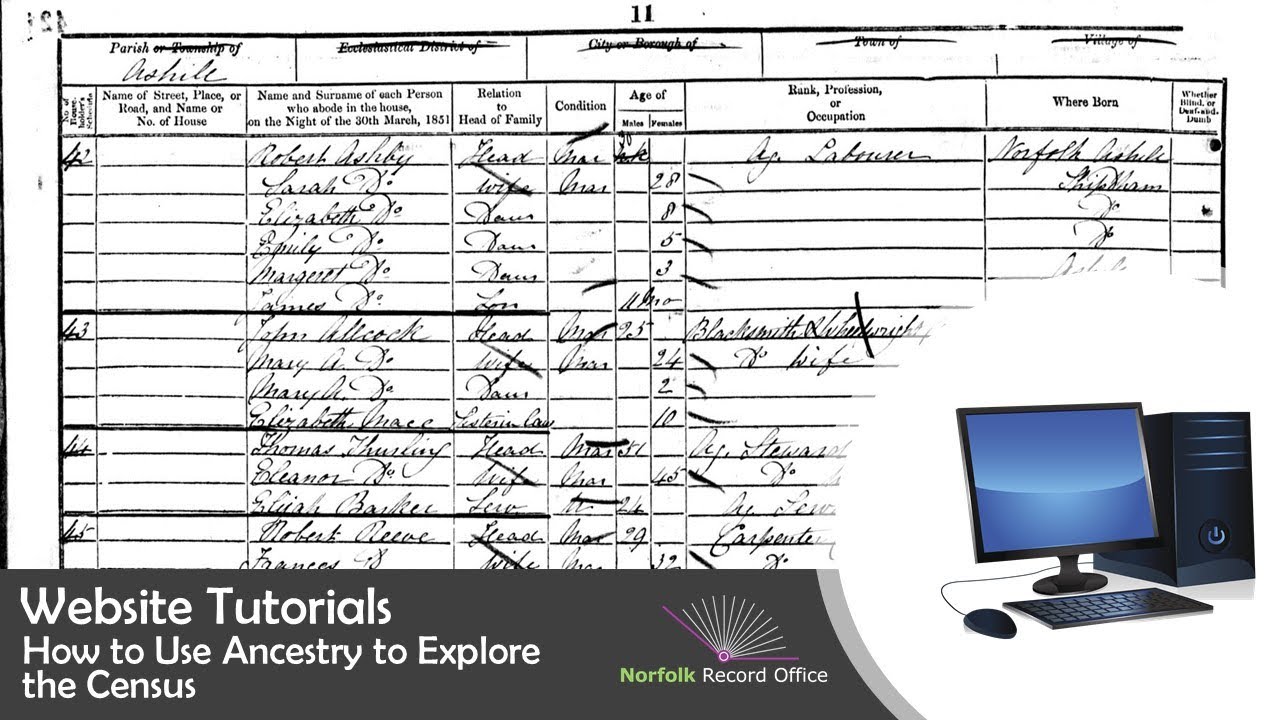 11
Parish or Township of Ecclesiastical District of City or Borough of Town of Village of
Ashill
No. of House- holder's Schedule Name of Street, Place, or Road, and Name or No. of House Name and Surname of each Person who abode in the house, on the Night of the 30th March, 1851 Relation to Head of Family Condition Age of Males Females Rank, Profession, or Occupation Where Born Whether Blind, or Deaf-and-Dumb
42 Robert Ashby Head Mar 30 Ag. Labourer Norfolk Ashill
Sarah Do Wife Mar 28 Shipdham
Elizabeth Do Daur 8 Do
Emily Do Daur 5 Do
Margeret Do Daur 3 Ashill
James Do Son 11 Mo
43 John Allcock Head Mar 25 Blacksmith & Wheelwright
Mary A. Do Wife Mar 24 Do Wife
Mary A. Do Daur 2
Elizabeth Mace Sister in Law 10
44 Thomas Thurling Head Mar 51 Ag. Steward
Eleanor Do Wife Mar 45 Do
Elijah Barker Serv 24 Ag. Serv
45 Robert Reeve Head Mar 29 Carpenter
Frances D Wife Mar 32 Do
Website Tutorials
How to Use Ancestry to Explore
the Census
Norfolk Record Office